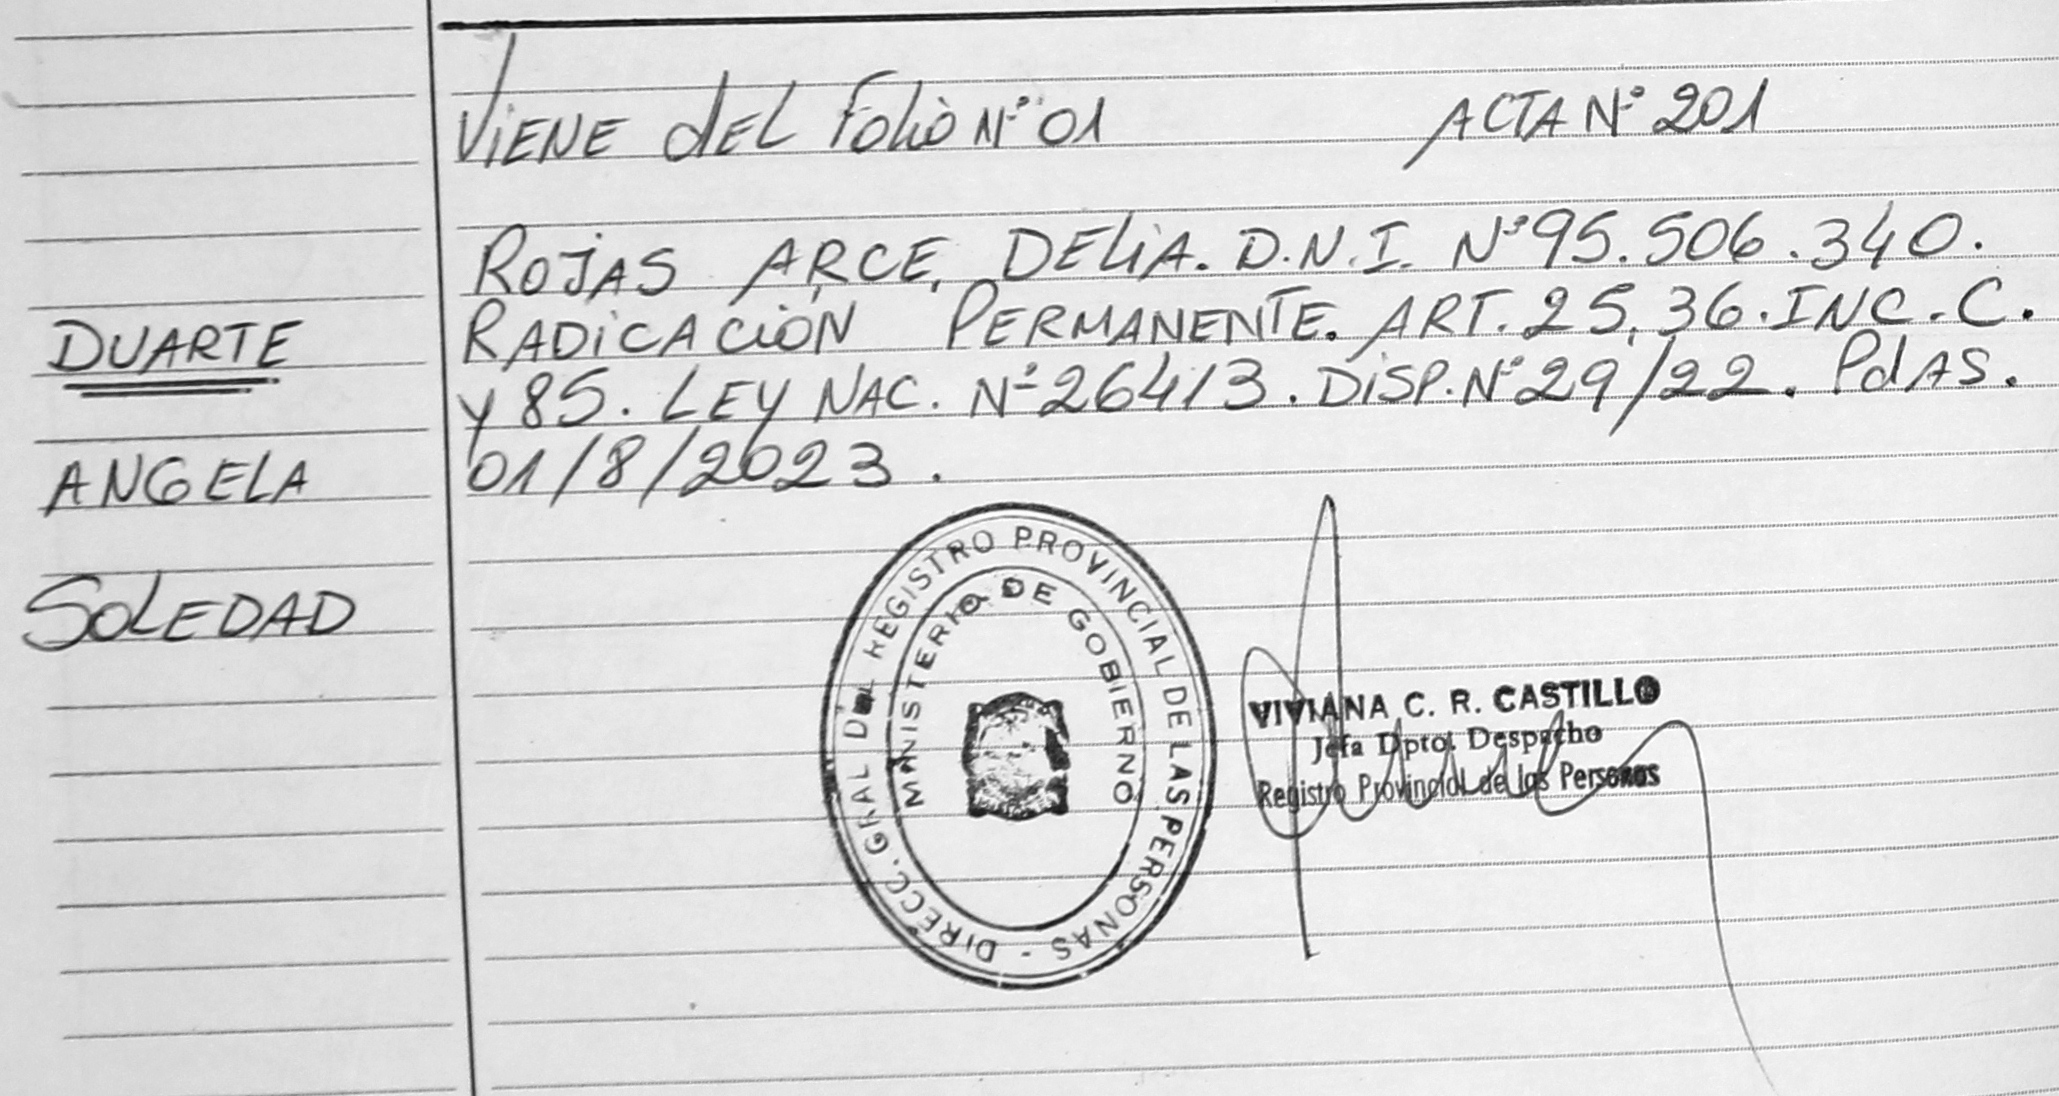 VIENE dEL Folio Nº 01 ACTA Nº 201
ROJAS ARCE, DELIA. D.N.I. Nº 95.506.340.
RADICACIÓN PERMANENTE. ART. 25, 36. INC. C.
y 85. LEY NAC. Nº 26413. DISP. Nº 29/22. PdAS.
01/8/2023.
DUARTE
ANGELA
SOLEDAD
DIRECC. GRAL DEL REGISTRO PROVINCIAL DE LAS PERSONAS -
MINISTERIO DE GOBIERNO
VIVIANA C. R. CASTILLO
Jefa Dpto. Despacho
Registro Provincial de las Personas